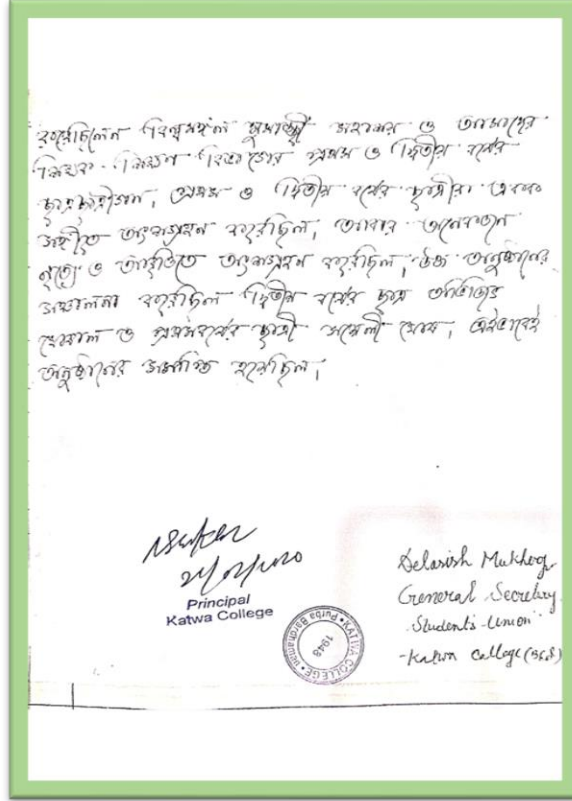 করেছিলেন বিশ্বমঙ্গল মহাশয় ও আমাদের
শিক্ষক-শিক্ষণ বিভাগের প্রথম ও দ্বিতীয় বর্ষের
ছাত্রছাত্রীগণ, প্রথম ও দ্বিতীয় বর্ষের ছাত্রীরা একক
সঙ্গীতে অংশগ্রহণ করেছিল, আবার অনেকজন
নৃত্যে ও আবৃত্তিতে অংশগ্রহণ করেছিল, উক্ত অনুষ্ঠানের
সঞ্চালনা করেছিল দ্বিতীয় বর্ষের ছাত্র অভিজিৎ
ঘোষাল ও প্রথমবর্ষের ছাত্রী ঘোষ, এইভাবেই
অনুষ্ঠানের সমাপ্তি হয়েছিল,
Principal
Katwa College
KATWA COLLEGE
Purba Bardhaman
1948
Debasish
General Secretary
Students Union
Katwa College